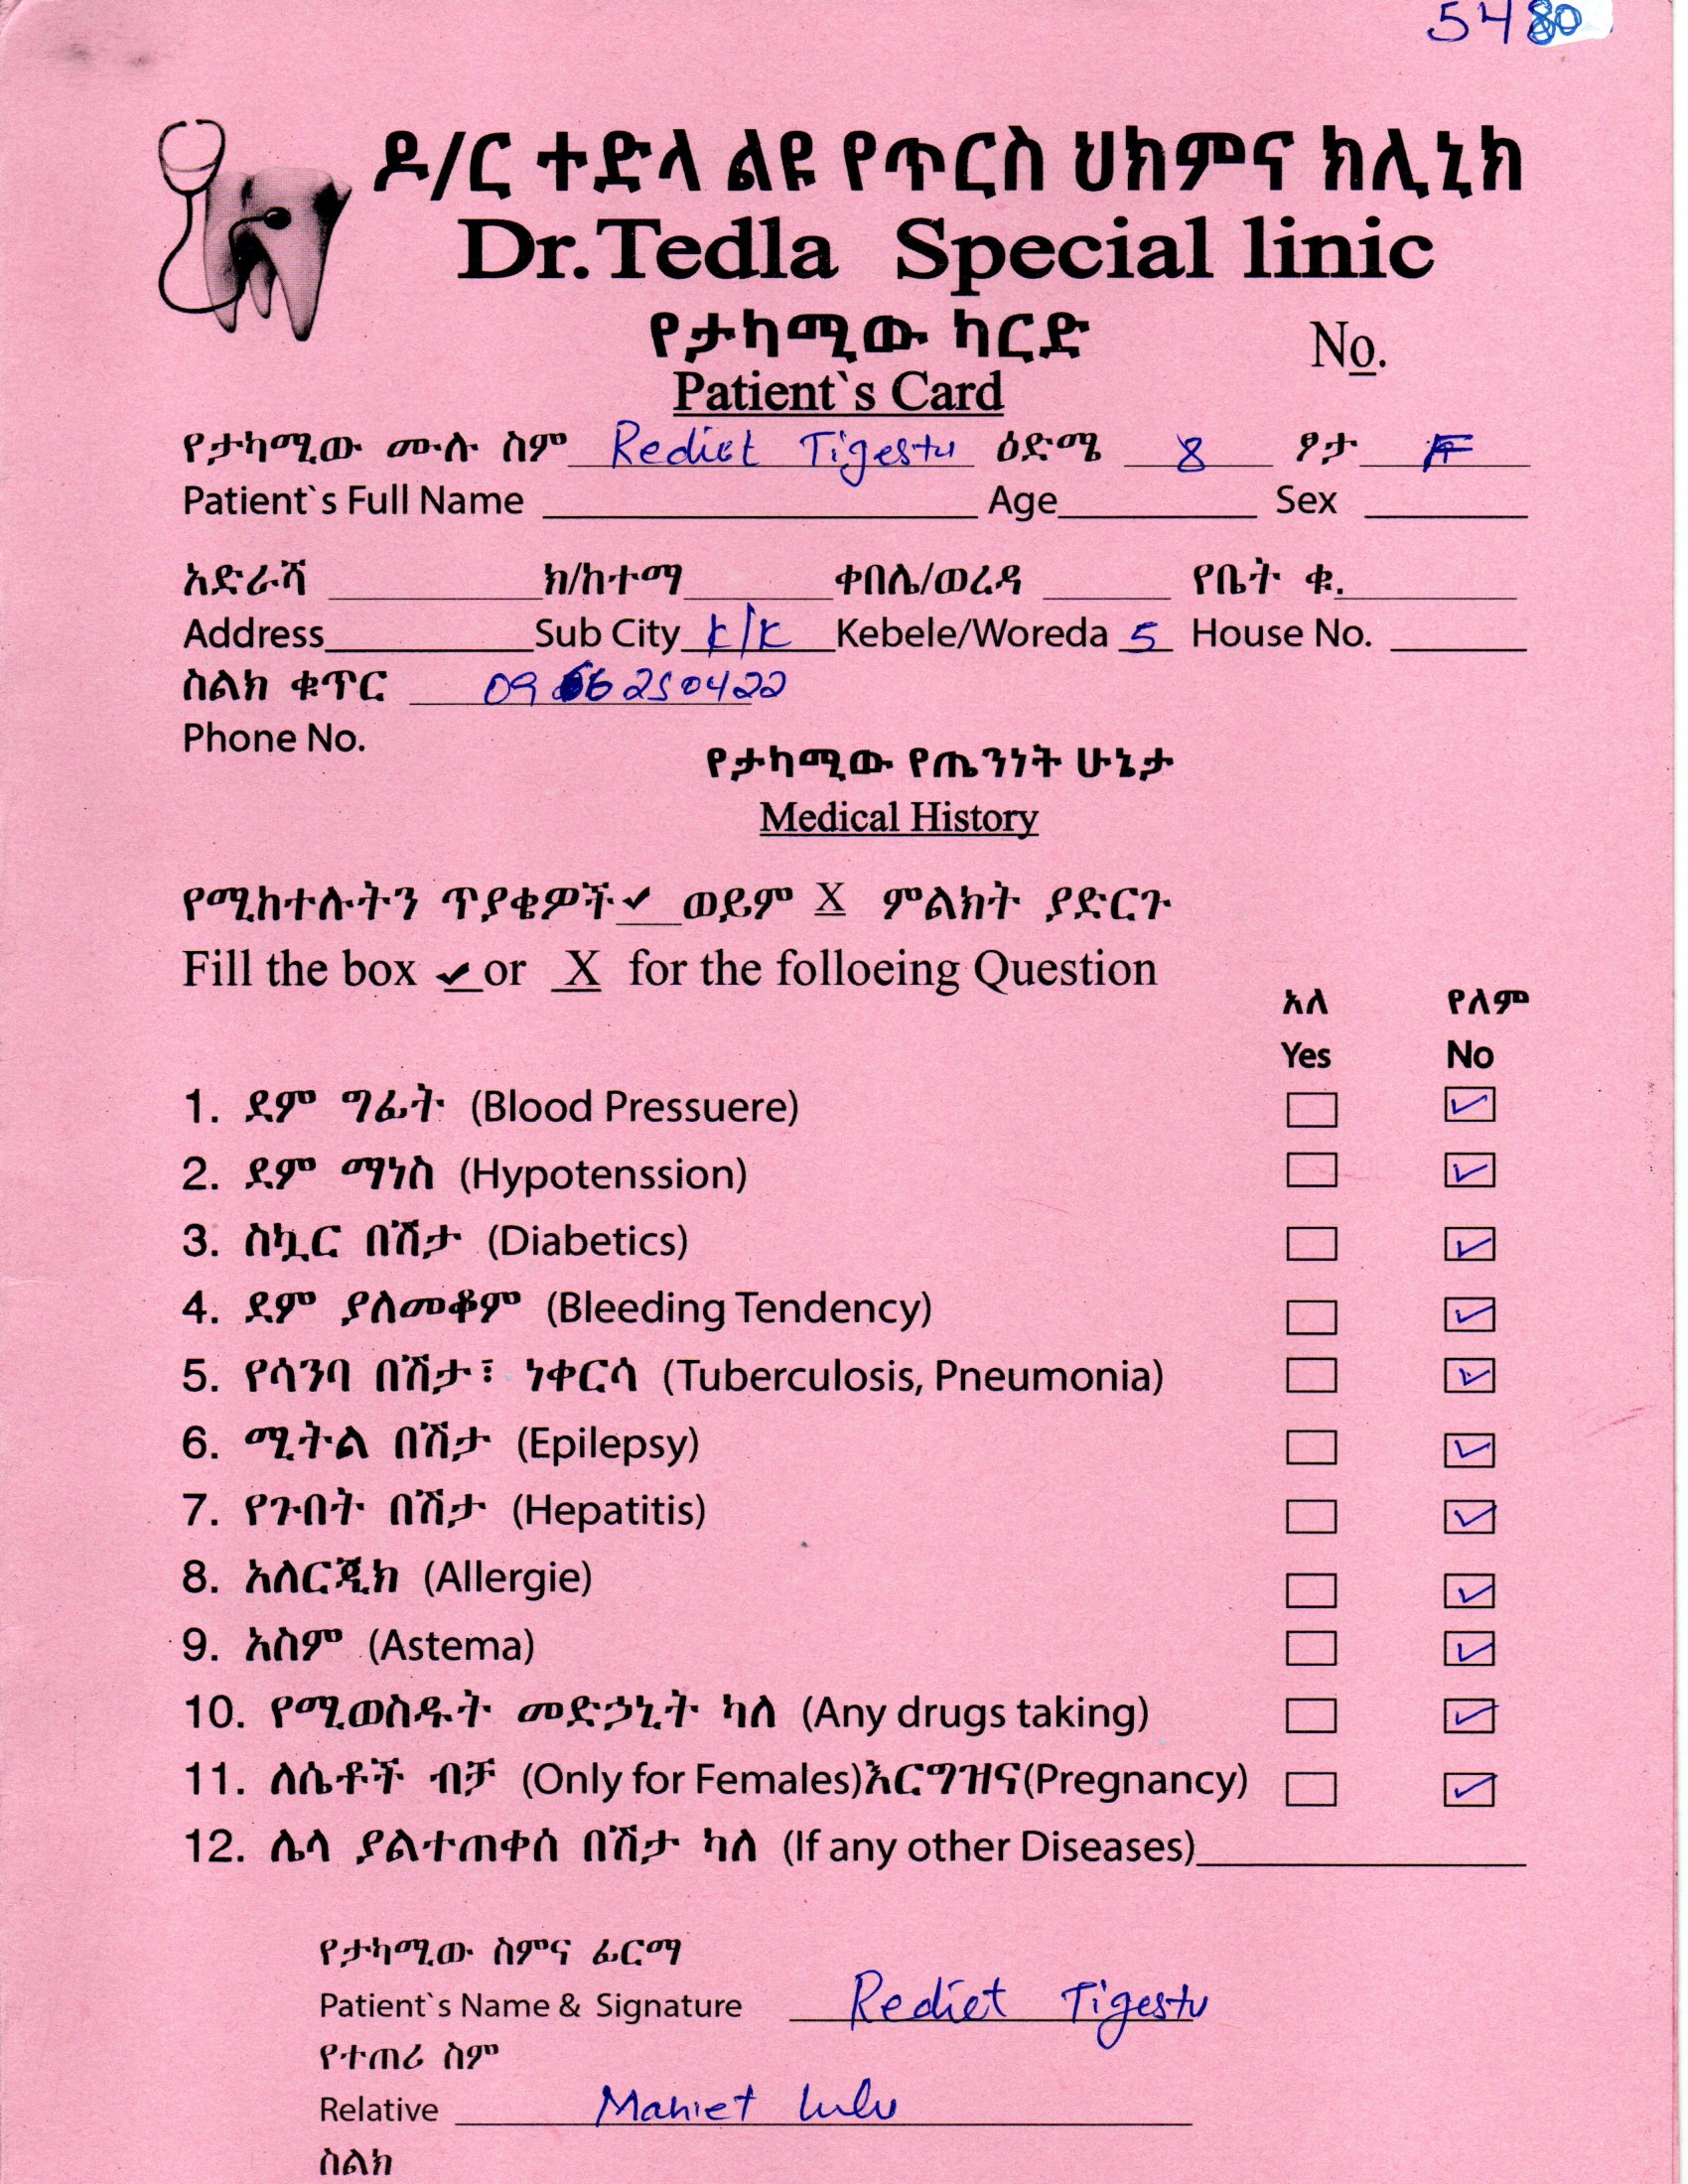 5480
ዶ/ር ተድላ ልዩ የጥርስ ህክምና ክሊኒክ
Dr.Tedla Special linic
የታካሚው ካርድ
No.
Patient`s Card
የታካሚው ሙሉ ስም Rediet Tigestu ዕድሜ 8 ፆታ F
Patient`s Full Name Age Sex
አድራሻ ክ/ከተማ ቀበሌ/ወረዳ የቤት ቁ.
Address Sub City k/k Kebele/Woreda 5 House No.
ስልክ ቁጥር 0966250422
Phone No.
የታካሚው የጤንነት ሁኔታ
Medical History
የሚከተሉትን ጥያቄዎች ✓ ወይም X ምልክት ያድርጉ
Fill the box ✓ or X for the folloeing Question
አለ የለም
Yes No
1. ደም ግፊት (Blood Pressuere) ✓
2. ደም ማነስ (Hypotenssion) ✓
3. ስኳር በሽታ (Diabetics) ✓
4. ደም ያለመቆም (Bleeding Tendency) ✓
5. የሳንባ በሽታ፣ ነቀርሳ (Tuberculosis, Pneumonia) ✓
6. ሚትል በሽታ (Epilepsy) ✓
7. የጉበት በሽታ (Hepatitis) ✓
8. አለርጂክ (Allergie) ✓
9. አስም (Astema) ✓
10. የሚወስዱት መድኃኒት ካለ (Any drugs taking) ✓
11. ለሴቶች ብቻ (Only for Females)እርግዝና(Pregnancy) ✓
12. ሌላ ያልተጠቀሰ በሽታ ካለ (If any other Diseases)
የታካሚው ስምና ፊርማ
Patient`s Name & Signature Rediet Tigestu
የተጠሪ ስም
Relative Mahiet Lulu
ስልክ